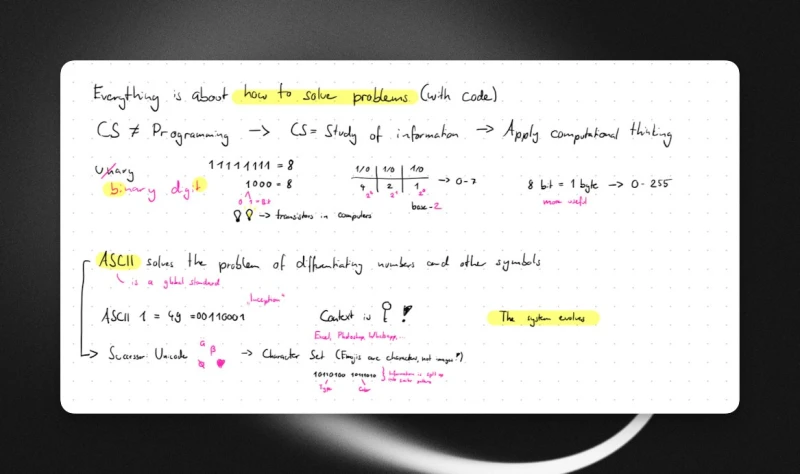 Everything is about how to solve problems (with code)
CS ≠ Programming → CS = Study of information → Apply computational thinking
Unary 11111111 = 8
binary digit 1000 = 8
0 1 = Bit
→ transistors in computers
1/0 1/0 1/0
4 2 1 → 0-7
2² 2¹ 2⁰
base-2
8 bit = 1 byte → 0-255
more useful
ASCII solves the problem of differentiating numbers and other symbols
is a global standard
"Inception"
ASCII 1 = 49 = 00110001
Context is !
Excel, Photoshop, Whatsapp...
The system evolves
→ Successor Unicode → Character Set (Emojis are characters, not images!)
β
10110100
Information is split up
into
Type Color